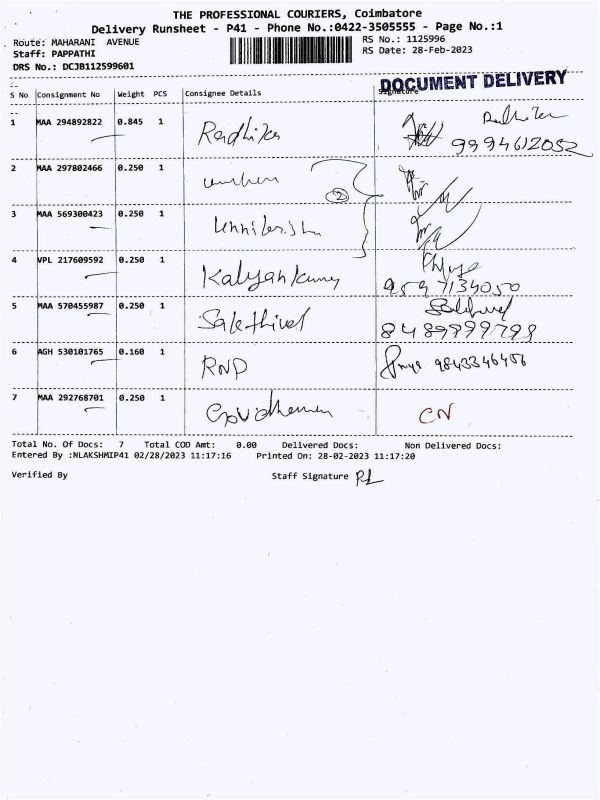 THE PROFESSIONAL COURIERS, Coimbatore
Delivery Runsheet - P41 - Phone No.:0422-3505555 - Page No.:1
Route: MAHARANI AVENUE
RS No.: 1125996
Staff: PAPPATHI
RS Date: 28-Feb-2023
DRS No.: DCJB112599601
DOCUMENT DELIVERY
S No Consignment No Weight PCS Consignee Details Signature
1 MAA 294892822 0.845 1 Radhika
9994612052
2 MAA 297802466 0.250 1
2
3 MAA 569300423 0.250 1
4 VPL 217609592 0.250 1 Kalyan Kumar
9597134050
5 MAA 570455987 0.250 1 Sakthivel
8489999799
6 AGH 530101765 0.160 1 RNP 9843346456
7 MAA 292768701 0.250 1 CN
Total No. Of Docs: 7 Total COD Amt: 0.00 Delivered Docs: Non Delivered Docs:
Entered By :NLAKSHMIP41 02/28/2023 11:17:16 Printed On: 28-02-2023 11:17:20
Verified By Staff Signature